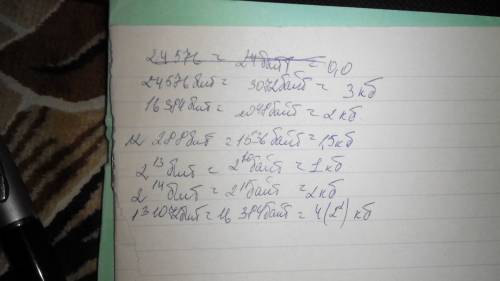 24576 = 24байт = 0,0
24576бит = 3072байт = 3 кб
16384бит = 2048байт = 2 кб
12 288бит = 1536байт = 1,5кб
2¹³бит = 2¹⁰байт = 1 кб
2¹⁴бит = 2¹¹байт = 2кб
131072бит = 16 384байт = 4 (2⁴) кб